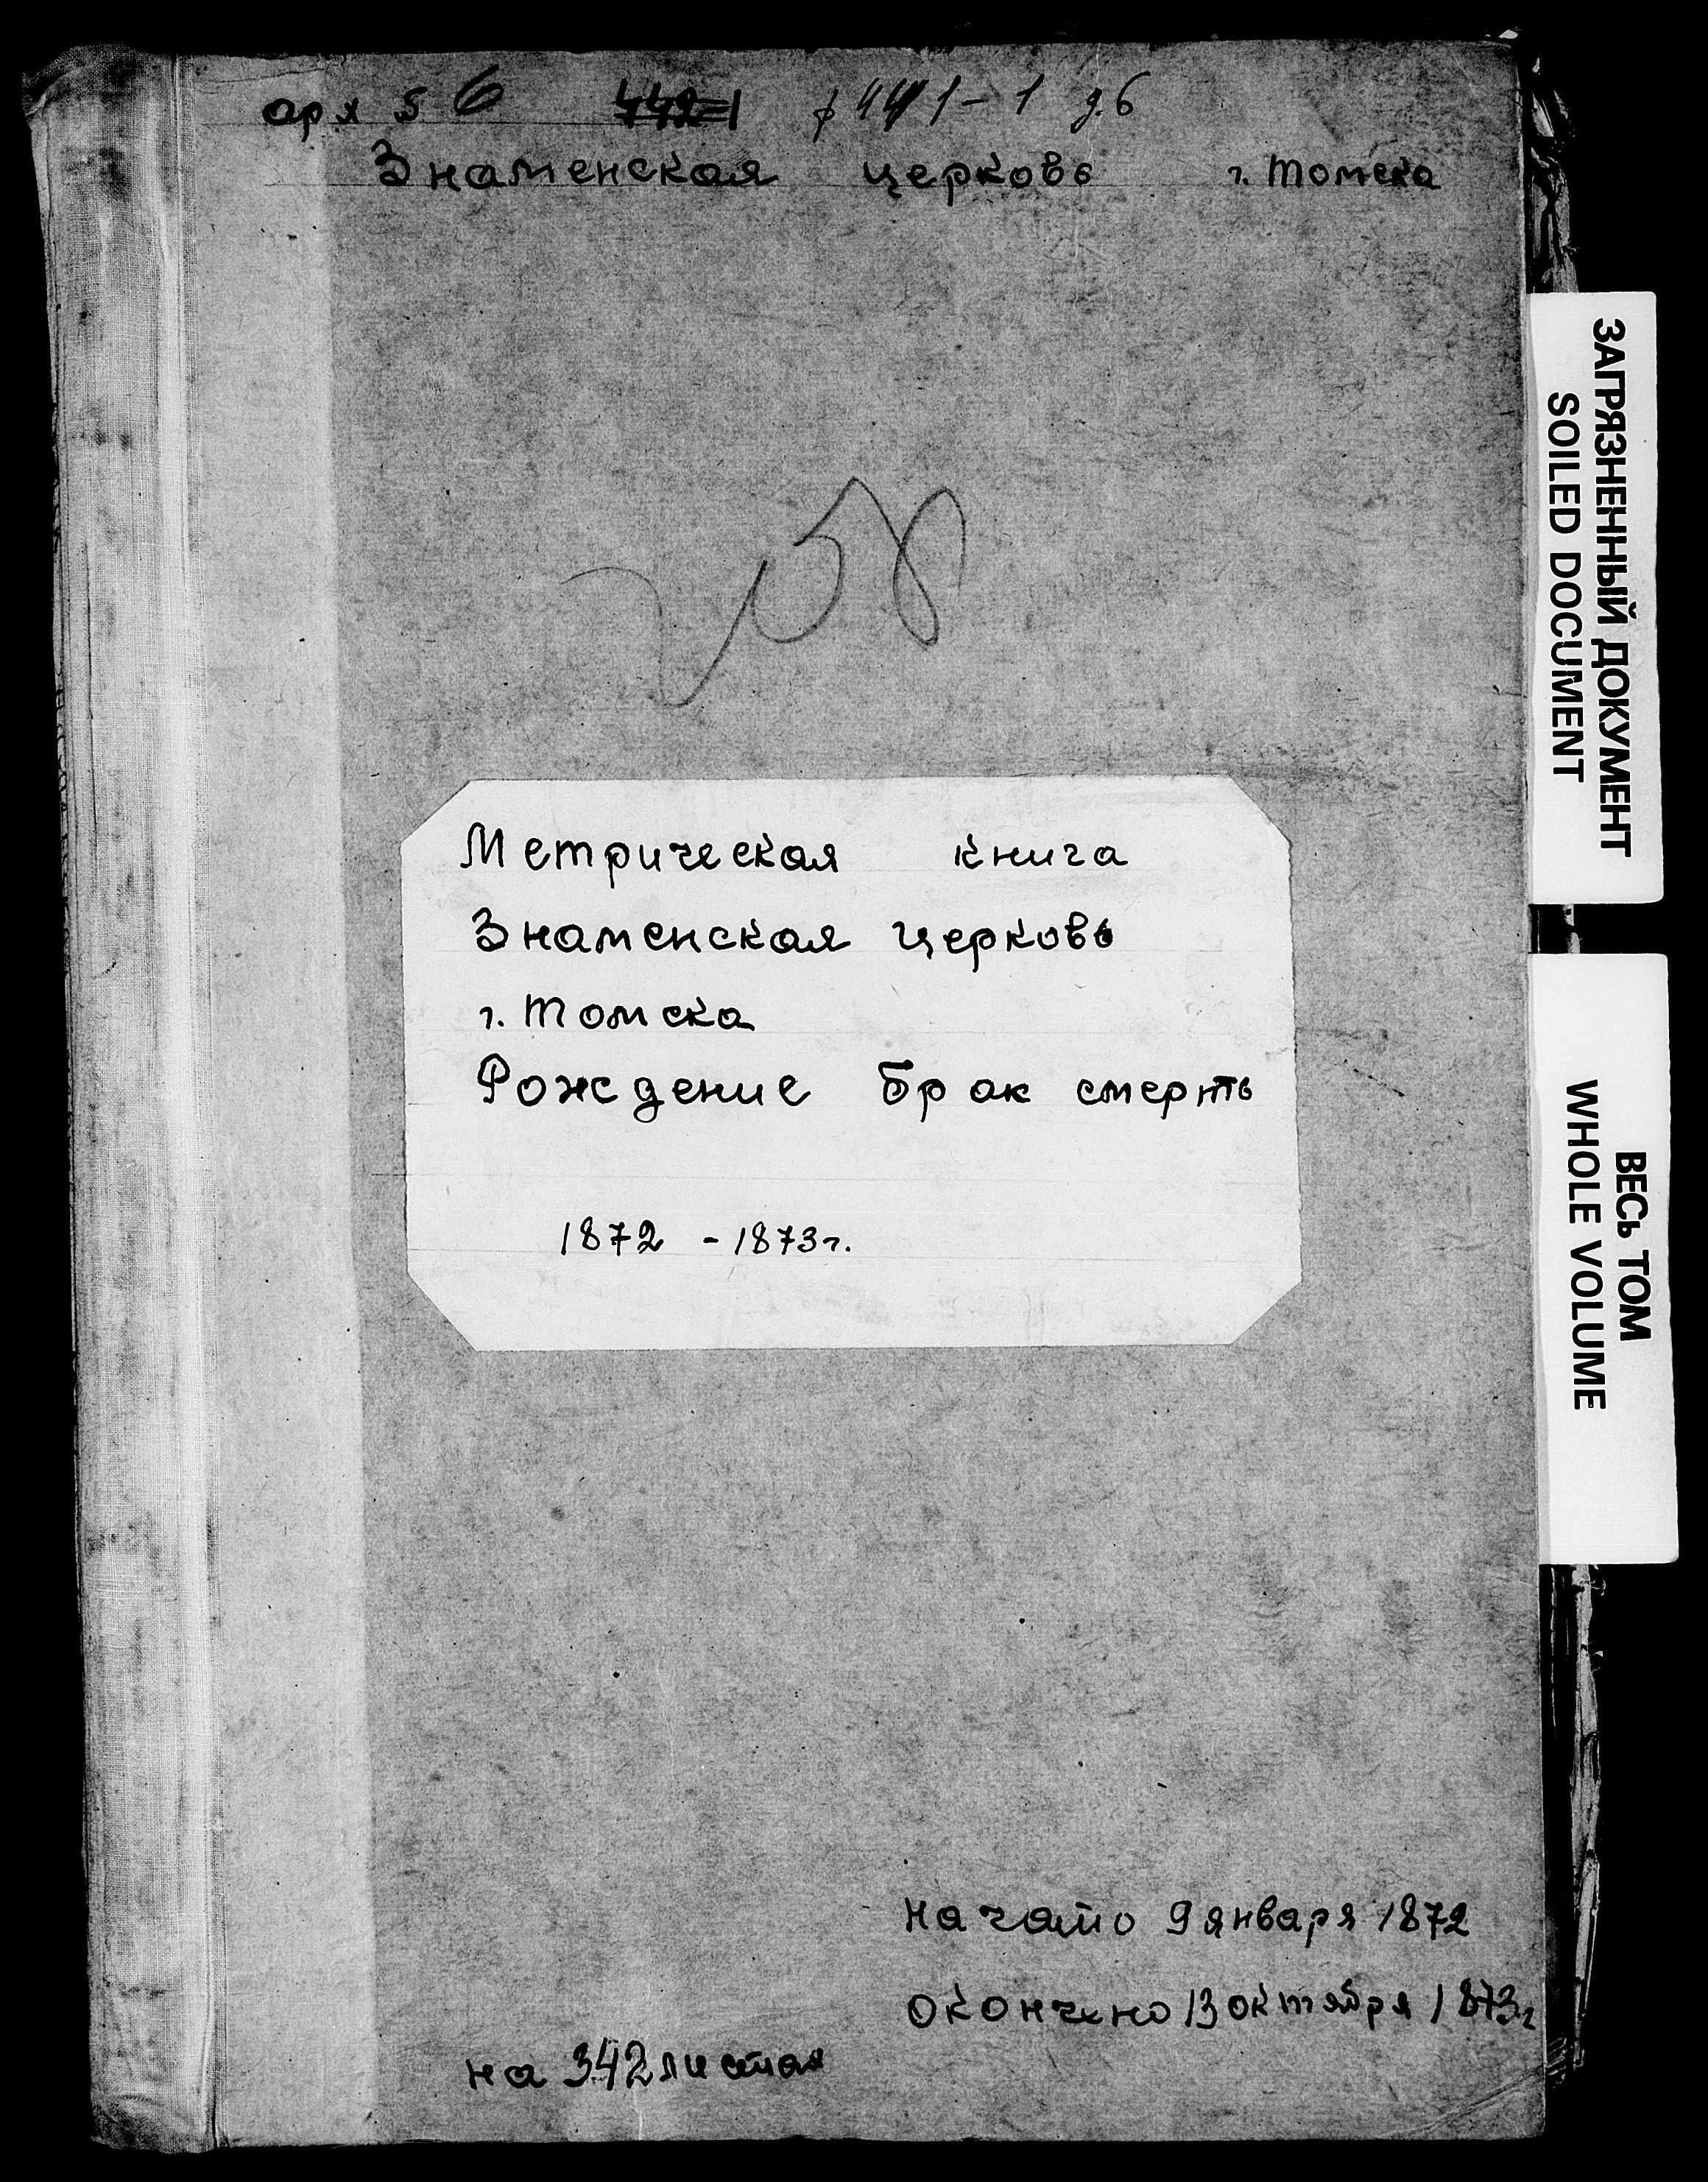 арх № 6 ф 441-1 д.6
Знаменская церковь г. Томска
Метрическая книга
Знаменская церковь
г. Томска
Рождение Брак смерть
1872 - 1873 г.
Начато 9 января 1872
окончено 13 октября 1873 г
на 342 листах
ЗАГРЯЗНЕННЫЙ ДОКУМЕНТ
SOILED DOCUMENT
ВЕСЬ ТОМ
WHOLE VOLUME